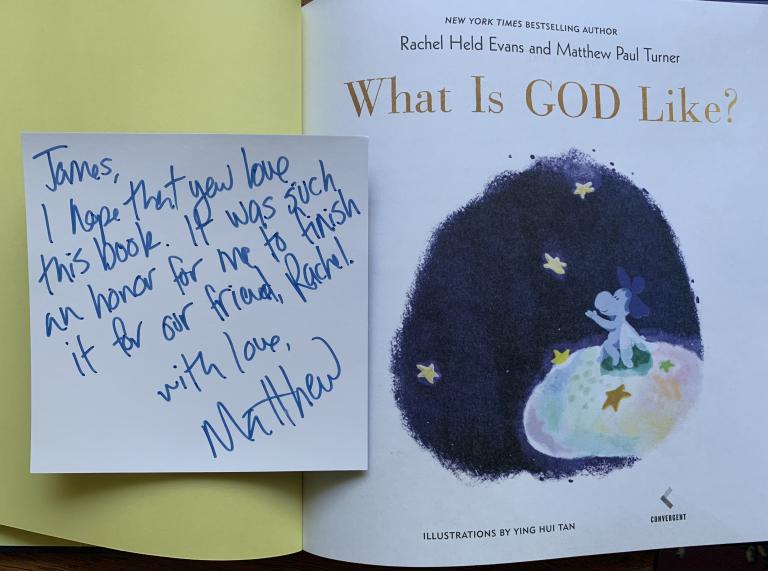 James,
I hope that you love
this book. It was such
an honor for me to finish
it for our friend, Rachel.
with love,
Matthew
NEW YORK TIMES BESTSELLING AUTHOR
Rachel Held Evans and Matthew Paul Turner
What Is GOD Like?
CONVERGENT
ILLUSTRATIONS BY YING HUI TAN